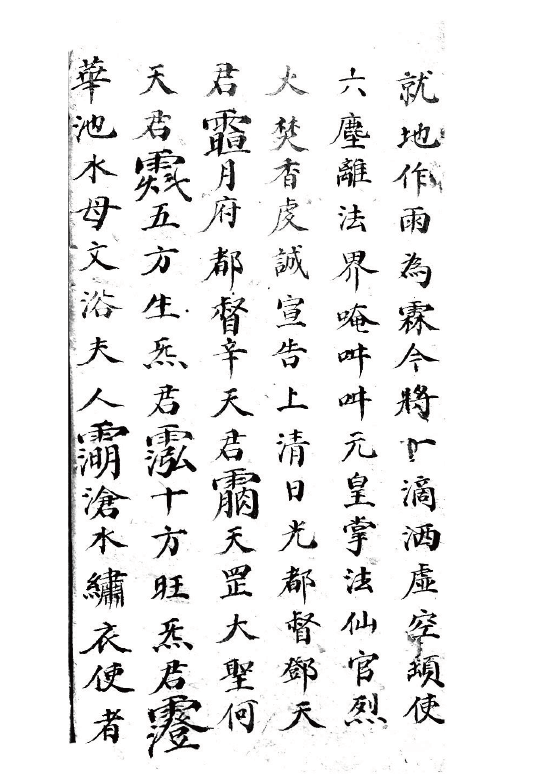 就地作雨為霖今將一滴洒虛空頃使
六塵離法界唵吽吽元皇掌法仙官烈
火焚香虔誠宣告上清日光都督鄧天
君月府都督辛天君天罡大聖何
天君五方生炁君十方旺炁君
華池水母文浴夫人滄水繡衣使者